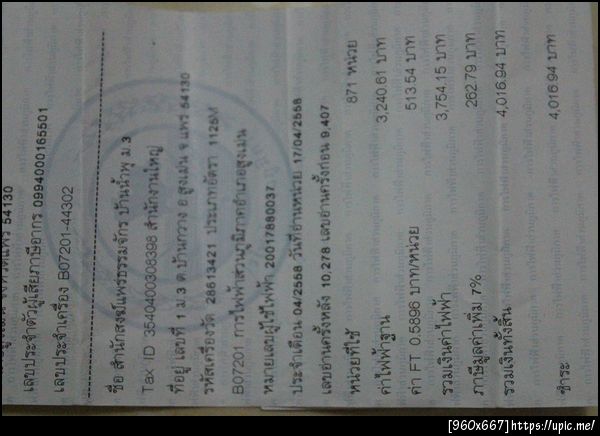 จังหวัดแพร่ 54130
เลขประจำตัวผู้เสียภาษีอากร 0994000165501
เลขประจำเครื่อง B07201-44302
ชื่อ สำนักสงฆ์แพร่ธรรมจักร บ้านน้ำพุ ม.3
Tax ID 3540400308398 สำนักงานใหญ่
ที่อยู่ เลขที่ 1 ม.3 ต.บ้านกวาง อ.สูงเม่น จ.แพร่ 54130
รหัสเครื่องวัด 28613421 ประเภทอัตรา 1125M
B07201 การไฟฟ้าส่วนภูมิภาคอำเภอสูงเม่น
หมายเลขผู้ใช้ไฟฟ้า 20017880037
ประจำเดือน 04/2558 วันที่อ่านหน่วย 17/04/2558
เลขอ่านครั้งหลัง 10,278 เลขอ่านครั้งก่อน 9,407
หน่วยที่ใช้ 871 หน่วย
ค่าไฟฟ้าฐาน 3,240.61 บาท
ค่า FT 0.5896 บาท/หน่วย 513.54 บาท
รวมเงินค่าไฟฟ้า 3,754.15 บาท
ภาษีมูลค่าเพิ่ม 7% 262.79 บาท
รวมเงินทั้งสิ้น 4,016.94 บาท
ชำระ 4,016.94 บาท
[960x667] https://upic.me/